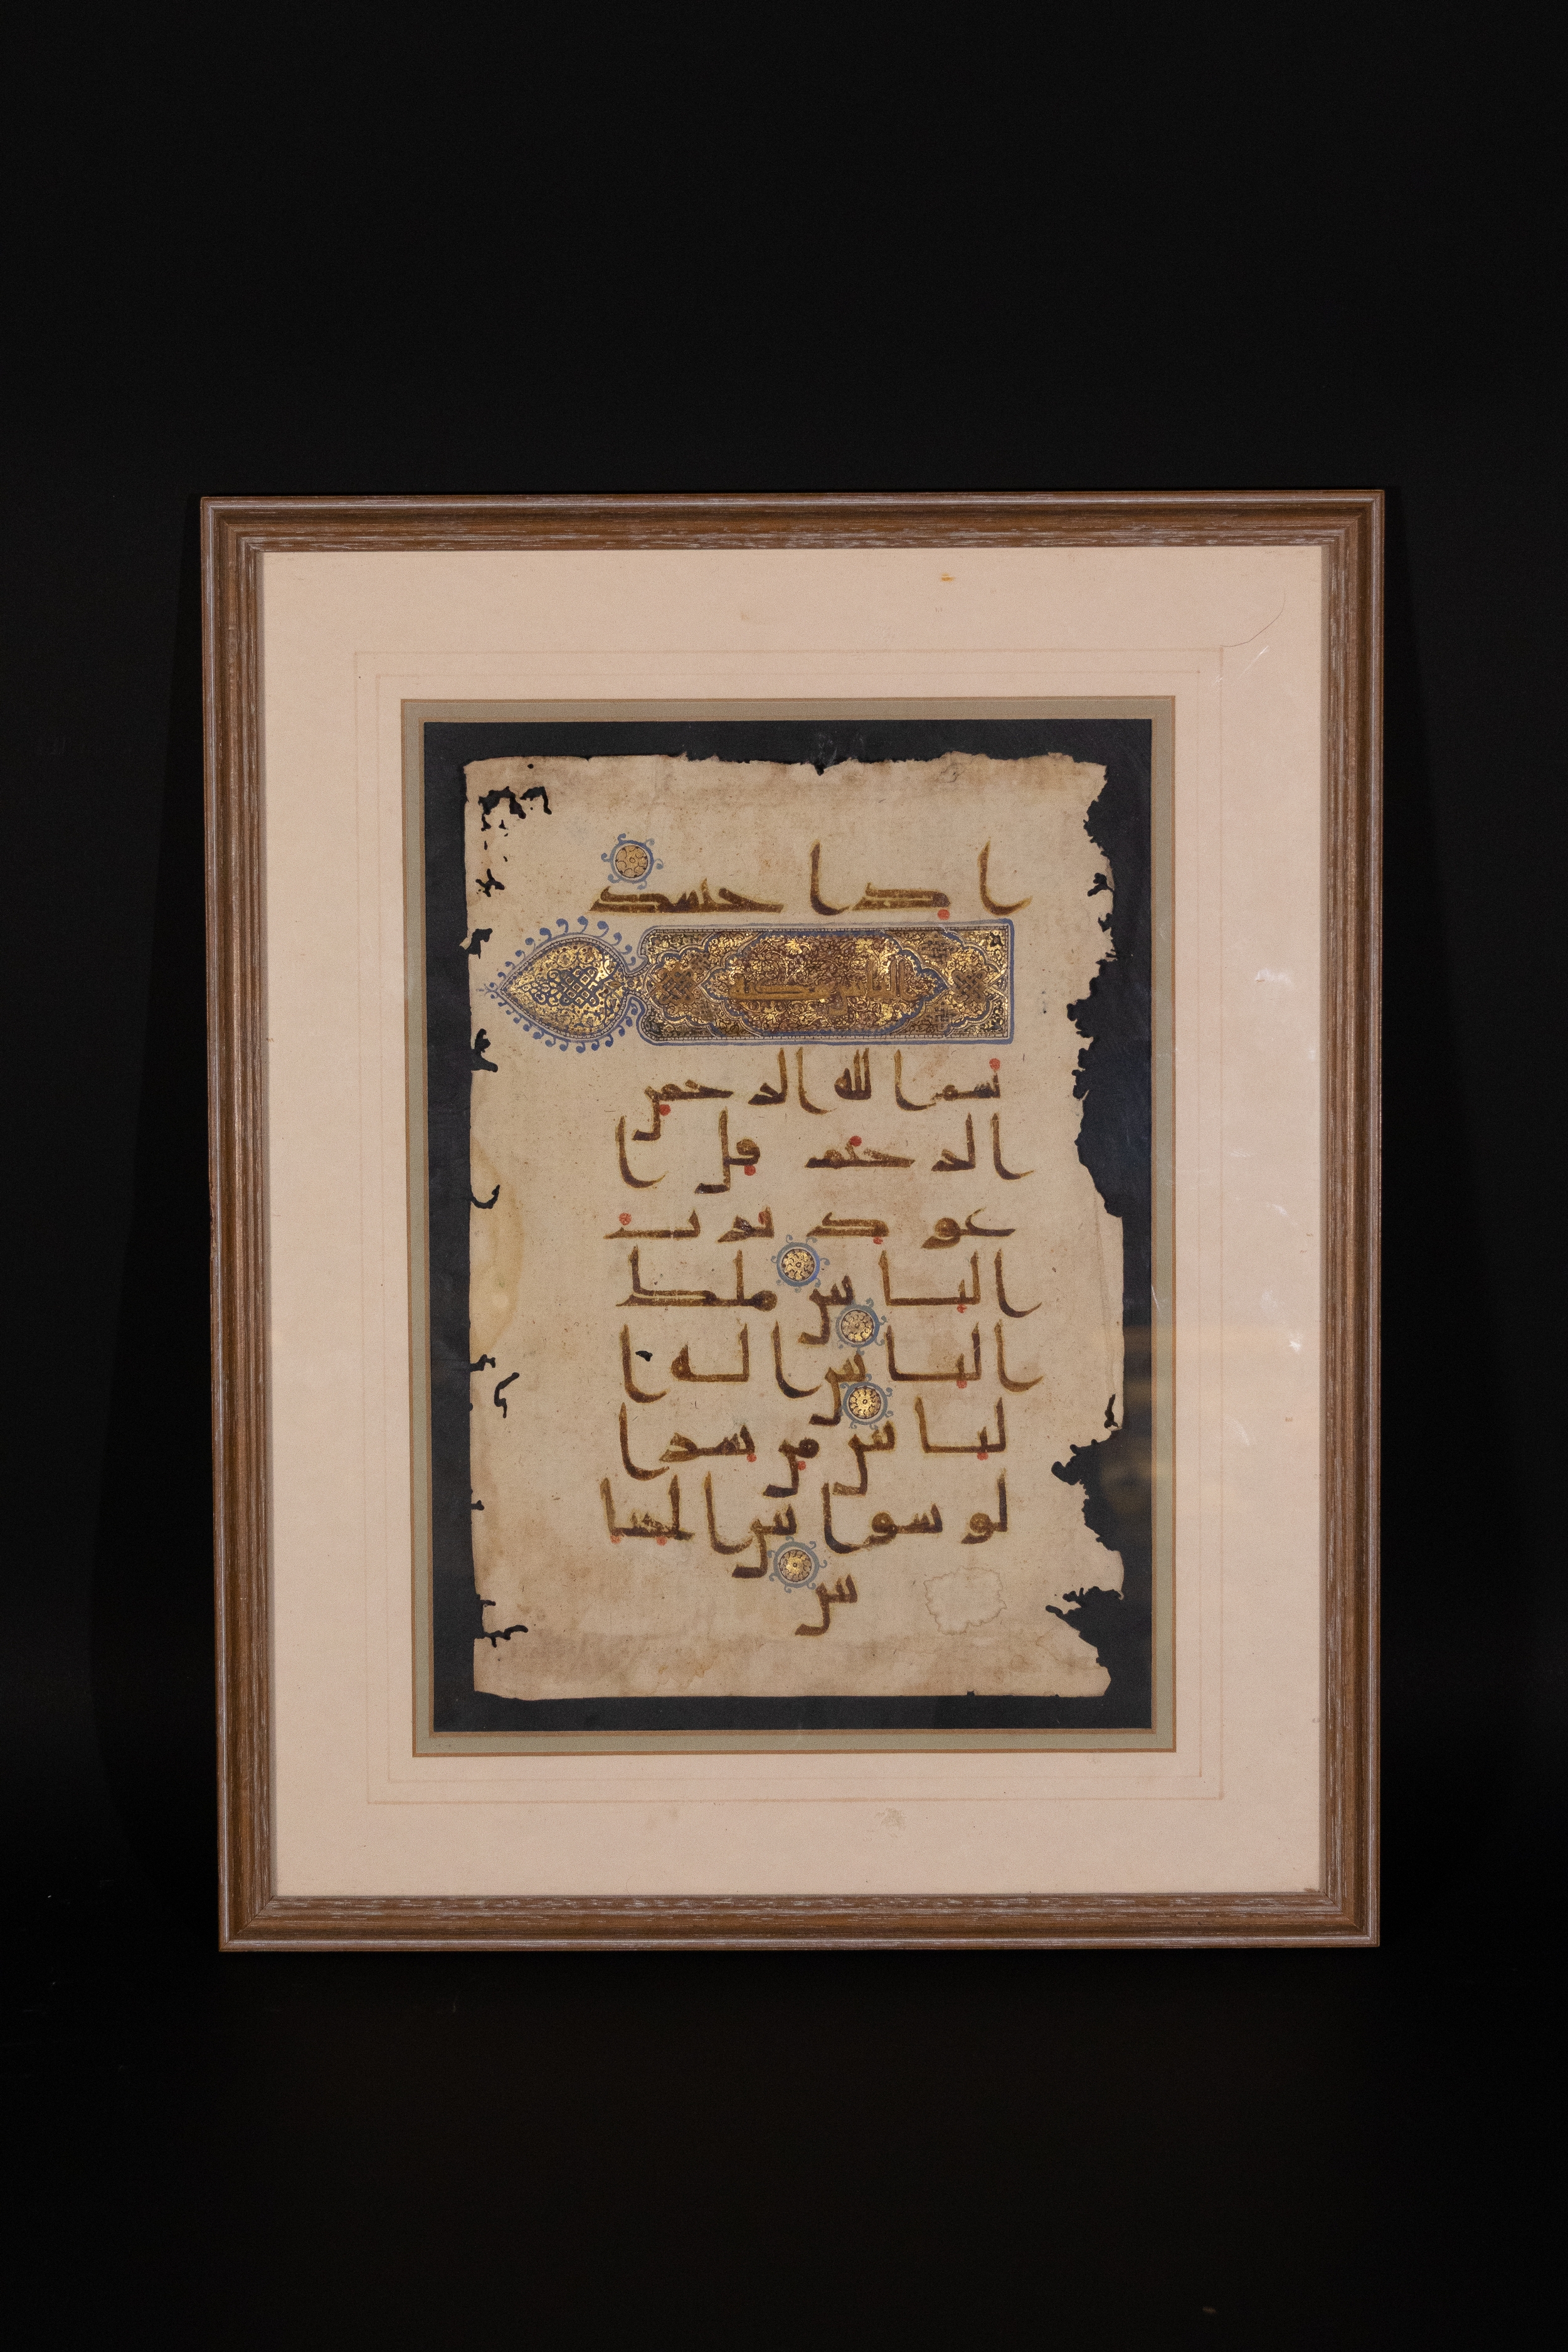 اذا حسد
الناس
بسم الله الرحمن
الرحيم قل ا
عوذ برب
الناس ملك
الناس اله ا
لناس من شر ا
لوسواس الخنا
س